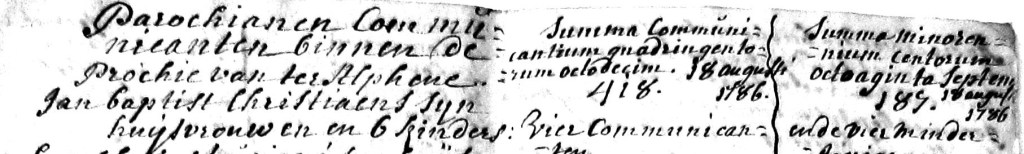 Parochianen Commu=
nicanten binnen de
Prochie van ter Alphene.
Jan Baptist Christiaens syn
huijsvrouw en en 6 kinders:
Summa Communi=
cantium quadringento=
rum octodecim. 18 augusti
418. 1786.
Vier Communican=
ten
Summa minoren=
nium centorum
octoaginta septem
187. 18 augusti
1786
ende vier minder=